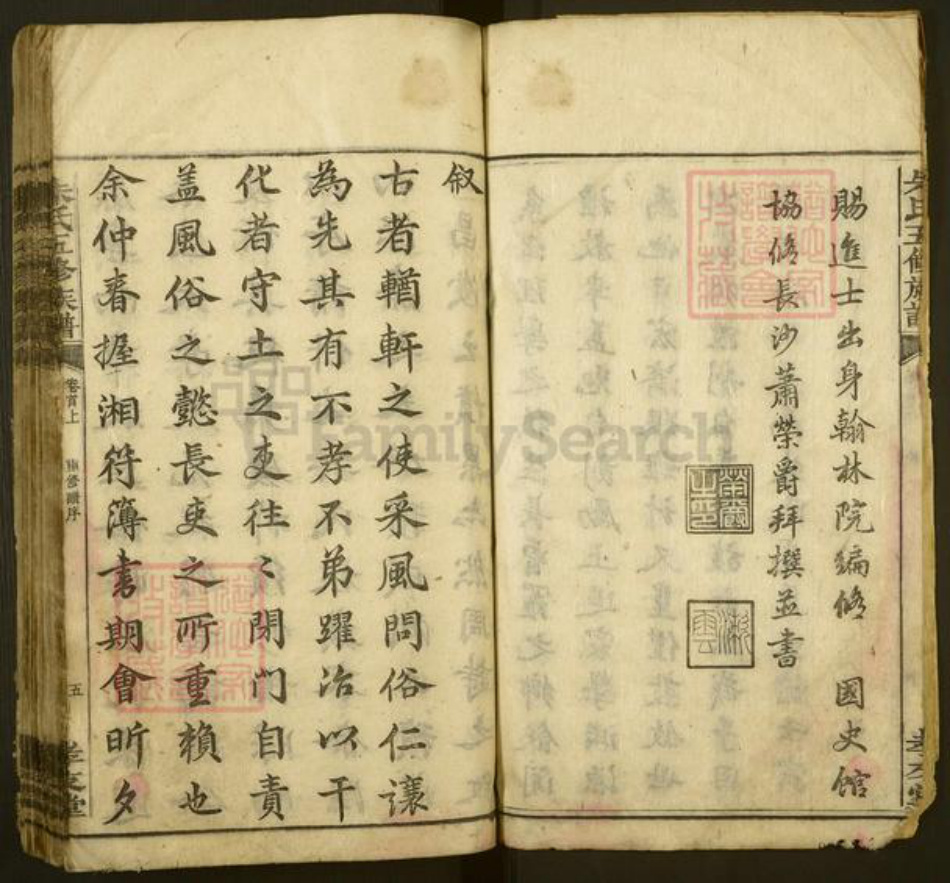 賜進士出身翰林院編修　國史館
協修長沙蕭榮爵拜撰並書
叙
古者輶軒之使采風問俗仁讓
為先其有不孝不弟躍冶以干
化者守土之吏往〻閉門自責
蓋風俗之懿長吏之所重賴也
余仲春握湘符簿書期會昕夕
朱氏五修族譜
卷首上
五
孝友堂
FamilySearch